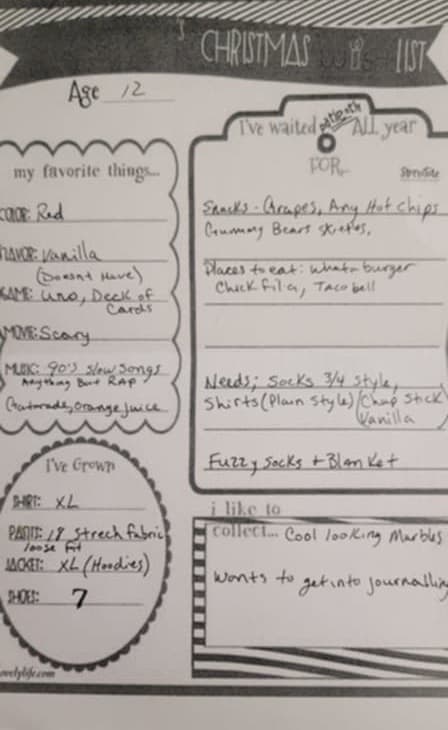 'S CHRISTMAS Wish LIST
Age 12
my favorite things...
COLOR: Red
FLAVOR: Vanilla
(Doesnt Have)
GAME: Uno, Deck of
Cards
MOVIE: Scary
MUSIC: 90's slow songs
Anything But RAP
Gatorade, orange juice
I've Grown
SHIRT: XL
PANTS: 18 strech fabric
loose fit
JACKET: XL (Hoodies)
SHOES: 7
ovelylife.com
I've waited patiently ALL year
FOR...
favorite
Snacks - Grapes, Any Hot chips
Gummy Bears
Places to eat: Whataburger
Chick fil a, Taco bell
Needs; Socks 3/4 style,
Shirts (Plain Style) Chap Stick
Vanilla
Fuzzy socks + Blanket
i like to
collect... Cool looking Marbles
Wants to get into journalling